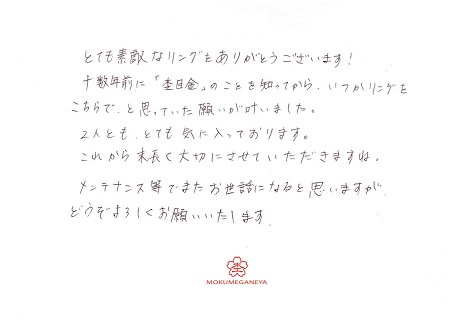 とても素敵なリングをありがとうございます!
十数年前に「杢目金」のことを知ってから、いつかリングを
こちらで、と思っていた願いが叶いました。
2人とも、とても気に入っております。
これから末長く大切にさせていただきますね。
メンテナンス等でまたお世話になると思いますが
どうぞよろしくお願いいたします.
杢
MOKUMEGANEYA